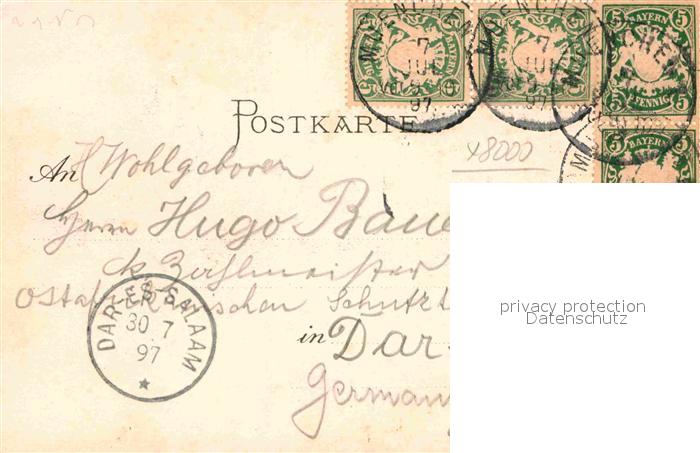 MUENCHEN
7
JUL
97
BAYERN
5
PFENNIG
POSTKARTE
x8000
An Wohlgeboren
Herrn Hugo Baue
k. Zahlmeister
Ostafrikanischen Schutzt
in Dar-
German
DAR-ES-SALAAM
30 7
97
privacy protection
Datenschutz